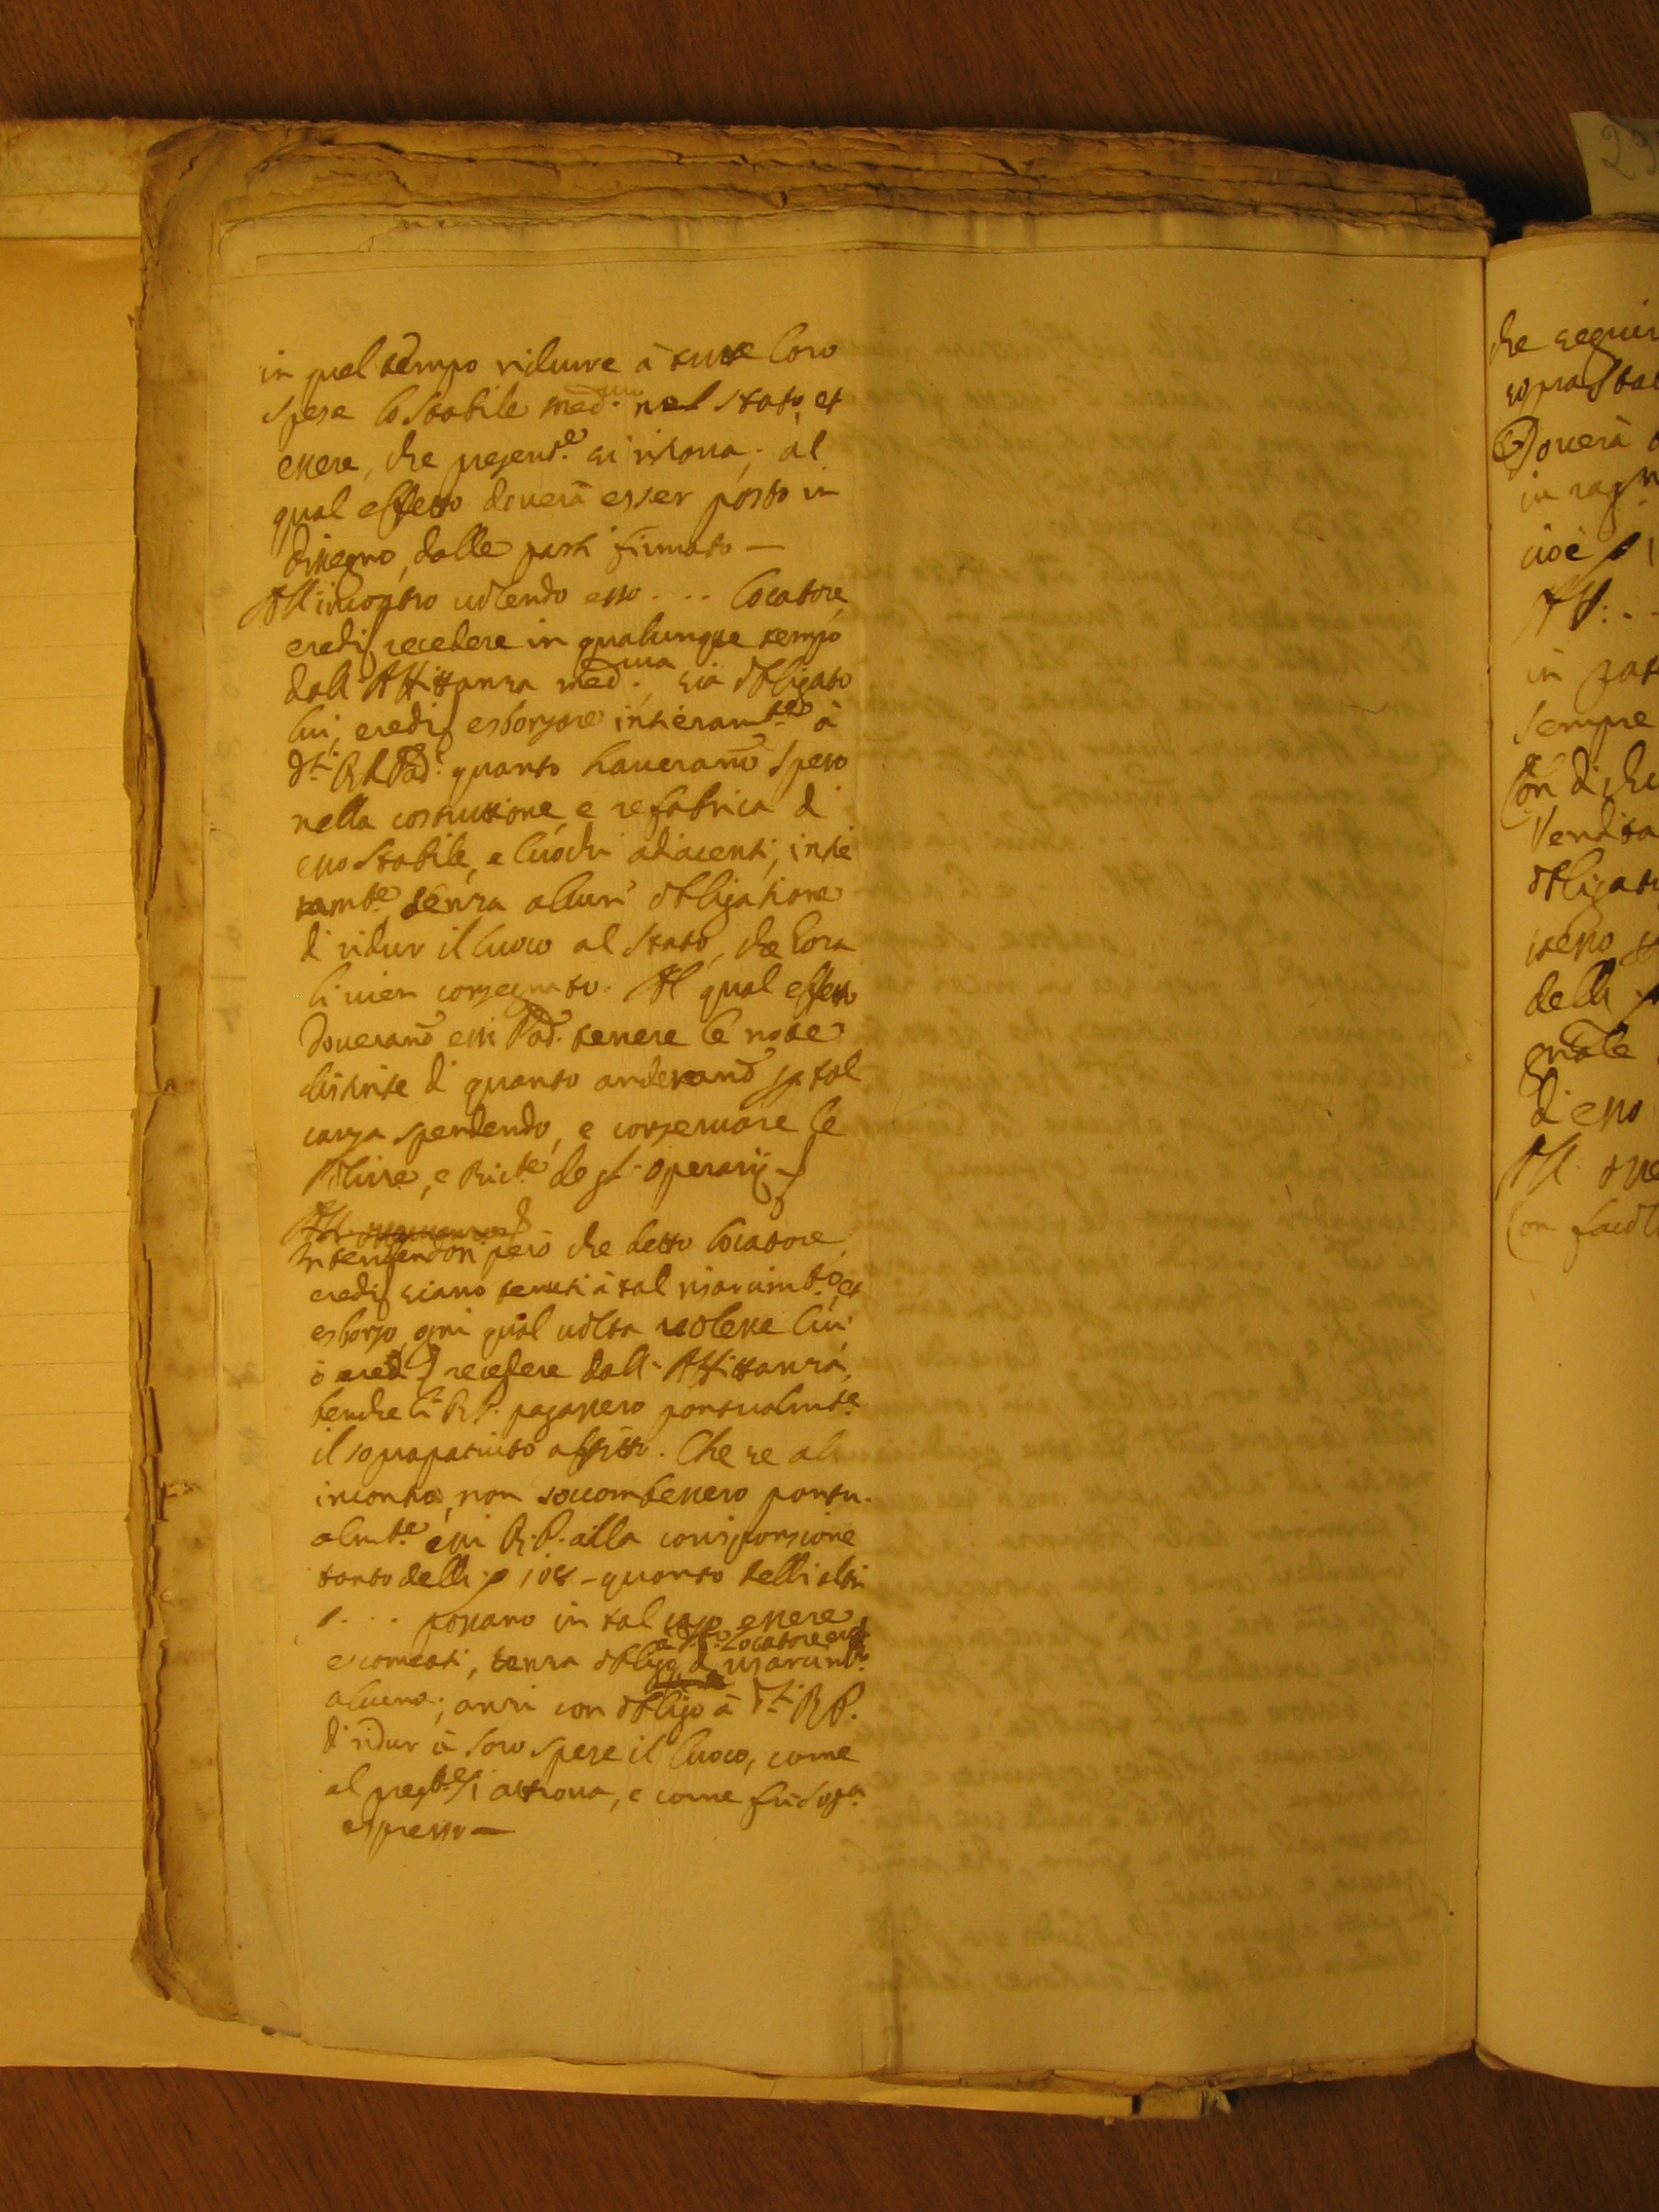 in quel tempo ridurre à tutte loro
spese lo stabile med.mo nel stato, et
essere, che presente. si ritroua; al
qual effetto douerà esser posto in
dissegno, dalle parti firmato —
All'incontro uolendo esso . . . locatore,
eredi recedere in qualunque tempo
dall'Affittanza med.ma, sia obligato
lui, eredi esborsare intieram.te à
d.ti RR Pad.i quanto hauerano speso
nella costruttione, e refabrica di
esso stabile, e luochi adiacenti, intie
ram.te, senza alcun' obligatione
di ridur il luoco al stato, che hora
li uien consegnato. Al qual effetto
douerano essi Pad.i tenere le note
distinte di quanto anderano per tal
causa spendendo, e conseruare le
Polizze, e Riceu.te degl'operarij
Intendendosi però che detto locatore,
eredi siano tenuti à tal risarcim.to, et
esborso ogni qual uolta uolesse lui
ò eredi recedere dall'Affittanza,
benche li R.P. pagassero pontualm.te
il soprapatuito affitto. Che se all'
incontro, non socombessero pontu.
alm.te essi R.P. alla corisponsione
tanto delli 108 – quanto delli altri
. . . possano in tal caso essere
à d.to Locatore ered.
escomiati, senza obligo di risarcim.to
alcuno; anzi con obligo à d.ti RP.
di ridur à loro spese il luoco, come
al pres.te si attroua, e come fù sop.a
espresso —
che seguir
soprasta
Douerà
in rag
cioè
Al: . .
in
sempre
Con dich
Vendita
obligat
stesso
delli
di esso
Con facol
29